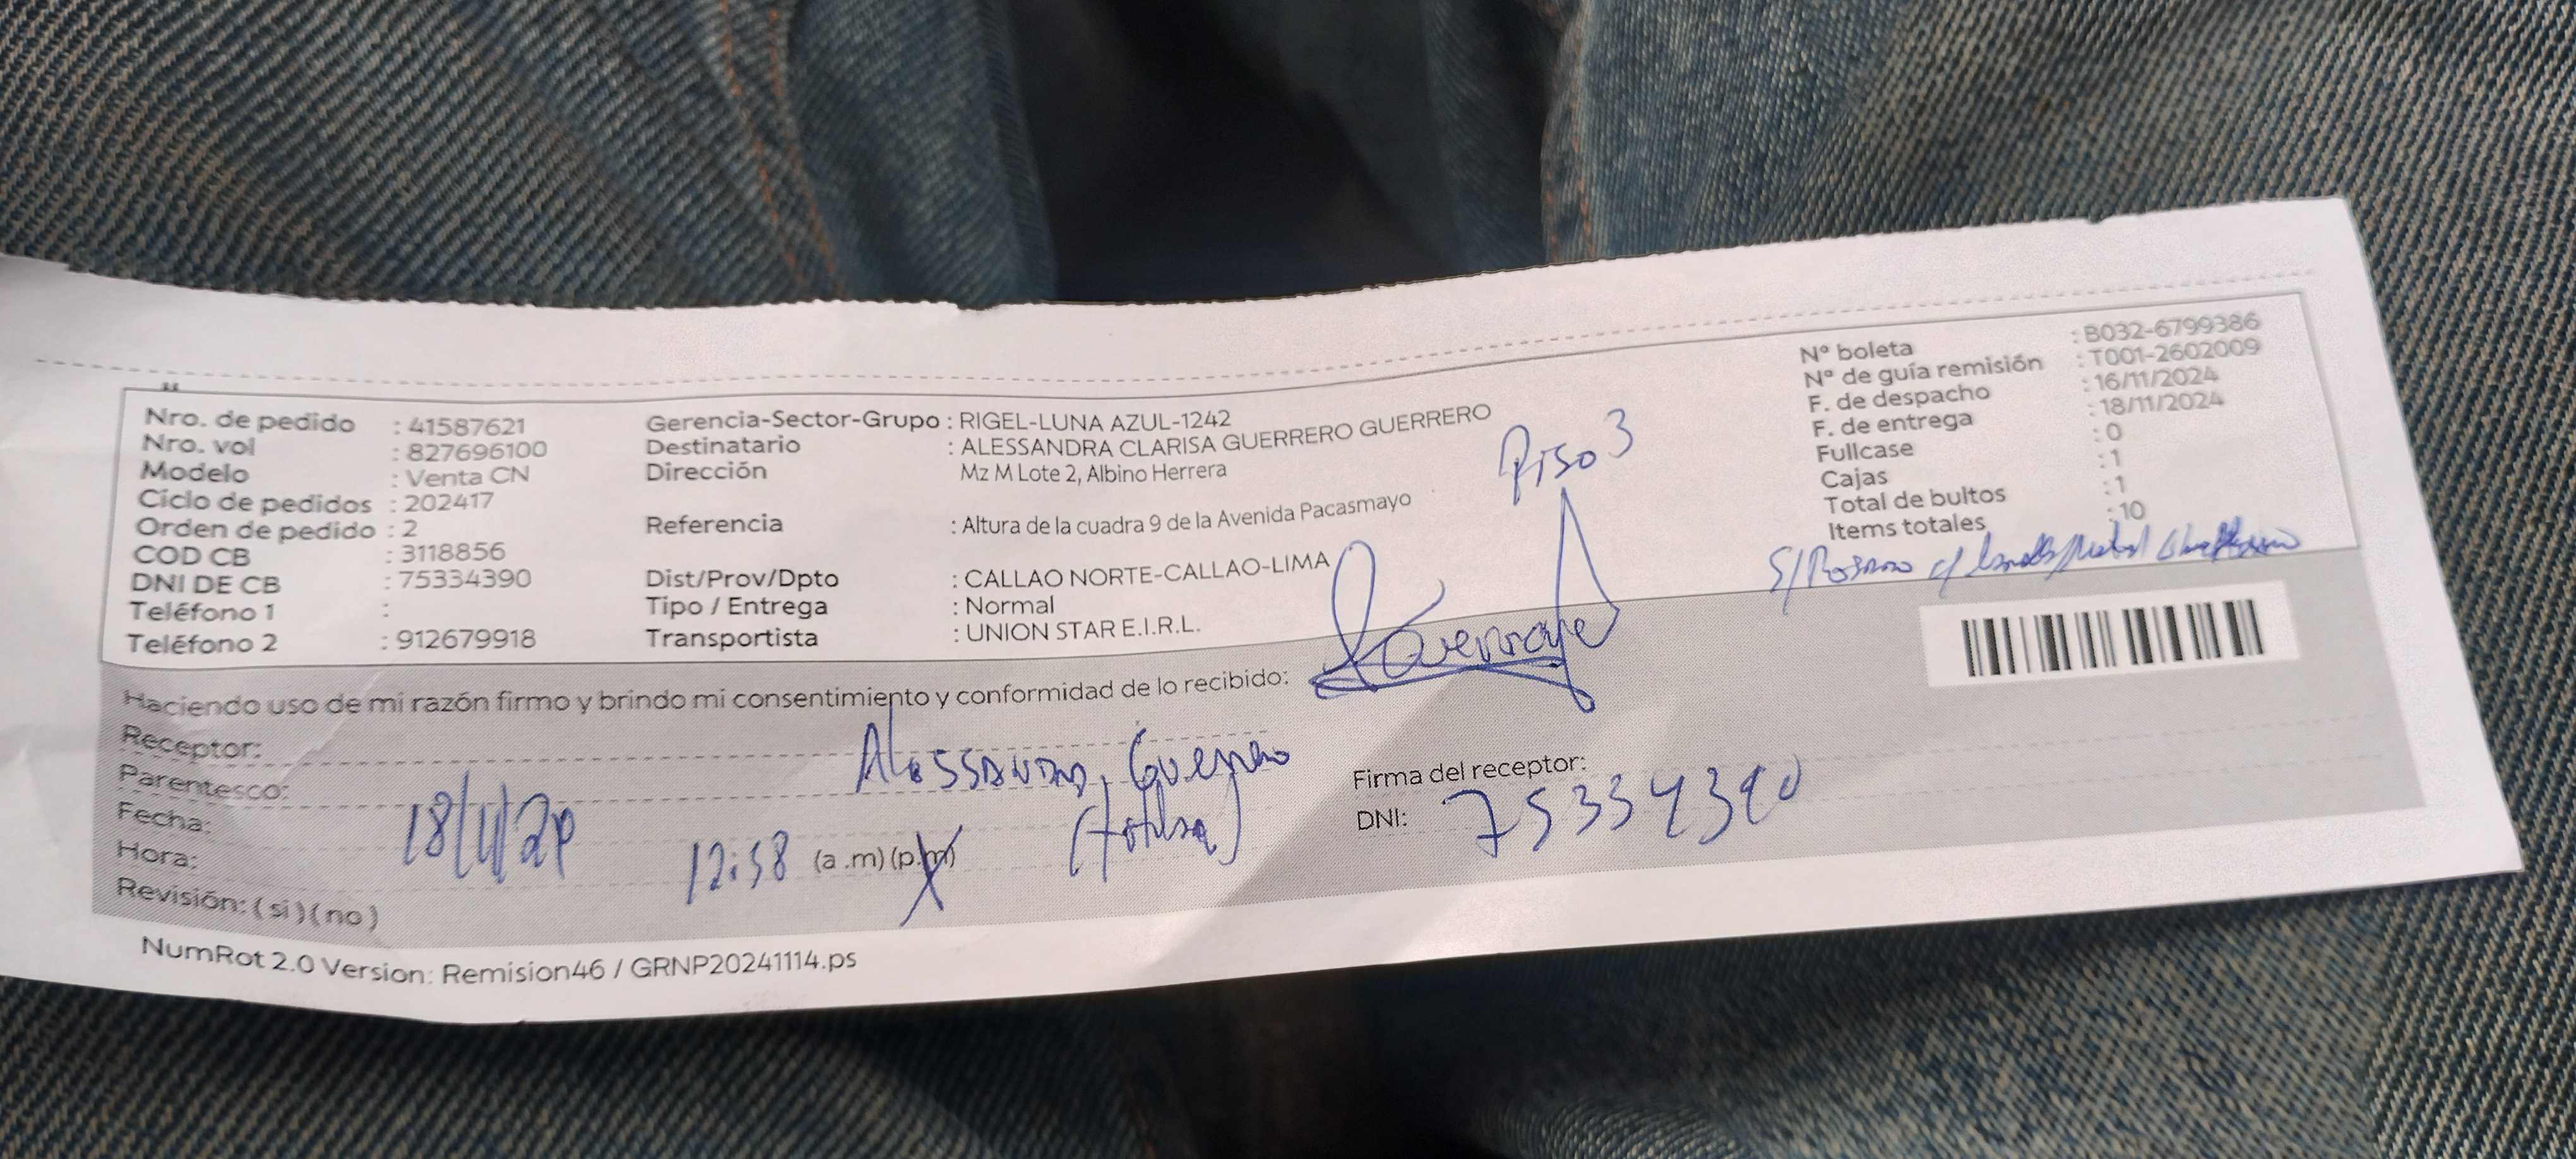 Nro. de pedido : 41587621
Nro. vol : 827696100
Modelo : Venta CN
Ciclo de pedidos : 202417
Orden de pedido : 2
COD CB : 3118856
DNI DE CB : 75334390
Teléfono 1 :
Teléfono 2 : 912679918
Gerencia-Sector-Grupo : RIGEL-LUNA AZUL-1242
Destinatario : ALESSANDRA CLARISA GUERRERO GUERRERO
Dirección Mz M Lote 2, Albino Herrera
Referencia : Altura de la cuadra 9 de la Avenida Pacasmayo
Dist/Prov/Dpto : CALLAO NORTE-CALLAO-LIMA
Tipo / Entrega : Normal
Transportista : UNION STAR E.I.R.L.
Piso 3
Nº boleta : B032-6799386
Nº de guía remisión : T001-2602009
F. de despacho : 16/11/2024
F. de entrega : 18/11/2024
Fullcase : 0
Cajas : 1
Total de bultos : 1
Items totales : 10
Haciendo uso de mi razón firmo y brindo mi consentimiento y conformidad de lo recibido:
Receptor: Alessandra Guerrero
Parentesco:
Fecha: 18/11/24
Hora: 12:58 (a .m) (p.m)
Revisión: ( si ) ( no )
Firma del receptor:
DNI: 75334390
NumRot 2.0 Version: Remision46 / GRNP20241114.ps